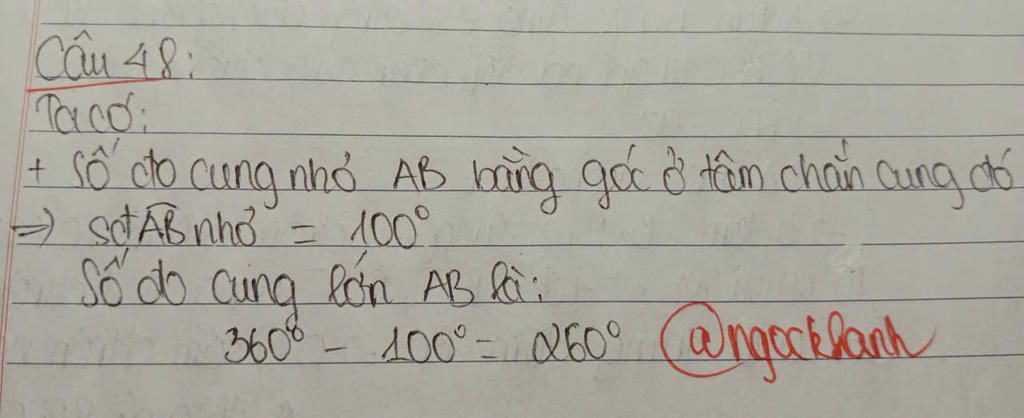 Câu 48:
Ta có:
+ Số đo cung nhỏ AB bằng góc ở tâm chắn cung đó
=> sđ AB nhỏ = 100°
Số đo cung lớn AB là:
360° - 100° = 260° @ngockhanh